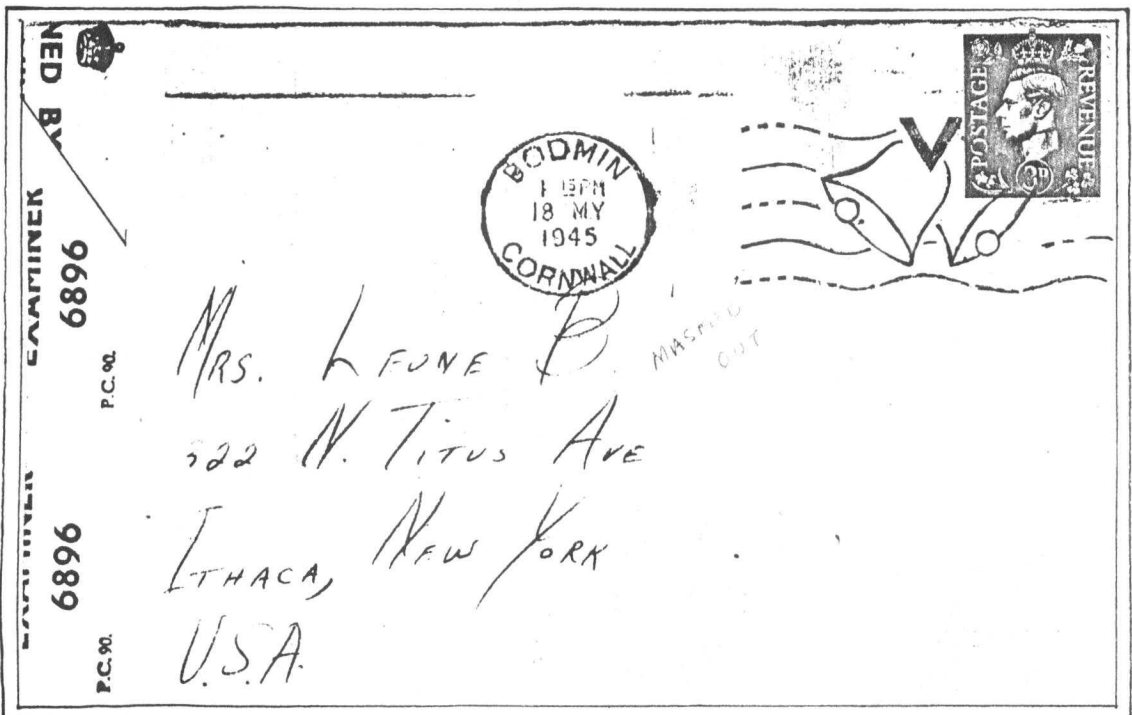 NED BY
EXAMINER
6896
P.C. 90.
6896
P.C. 90.
BODMIN
PM
18 MY
1945
CORNWALL
V
POSTAGE
REVENUE
3D
MRS. LEONE B.
MASKED
OUT
522 N. TITUS AVE
ITHACA, NEW YORK
U.S.A.